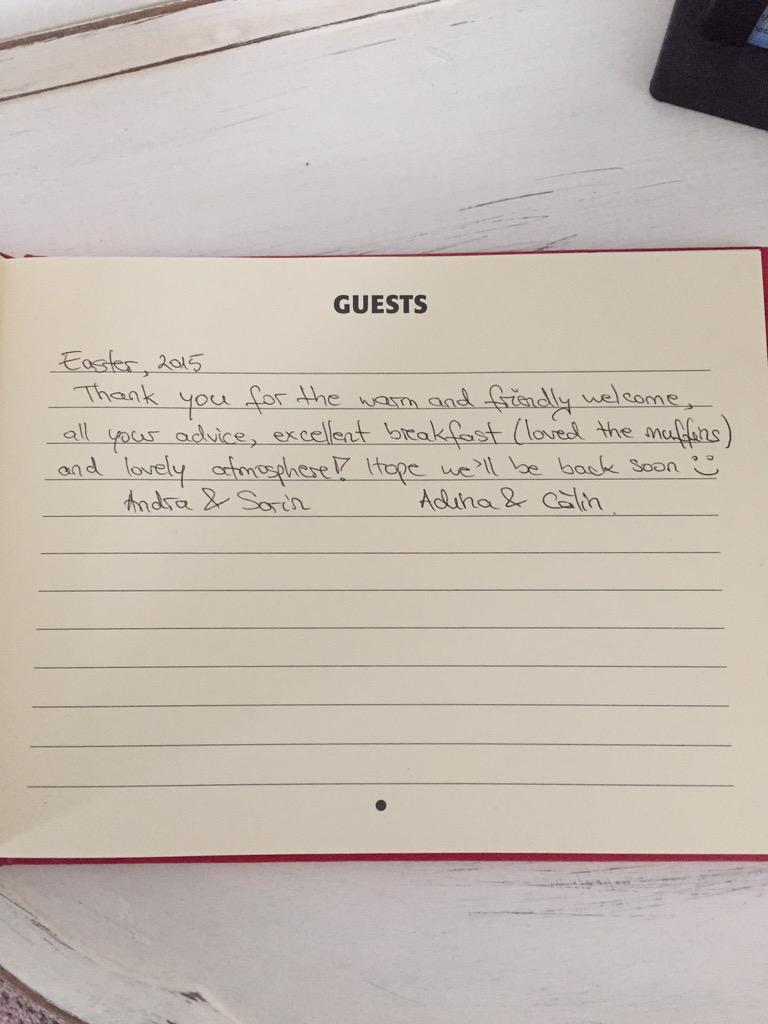 GUESTS
Easter, 2015
Thank you for the warm and friendly welcome,
all your advice, excellent breakfast (loved the muffins)
and lovely atmosphere! Hope we'll be back soon :)
Andra & Sorin Adina & Călin.